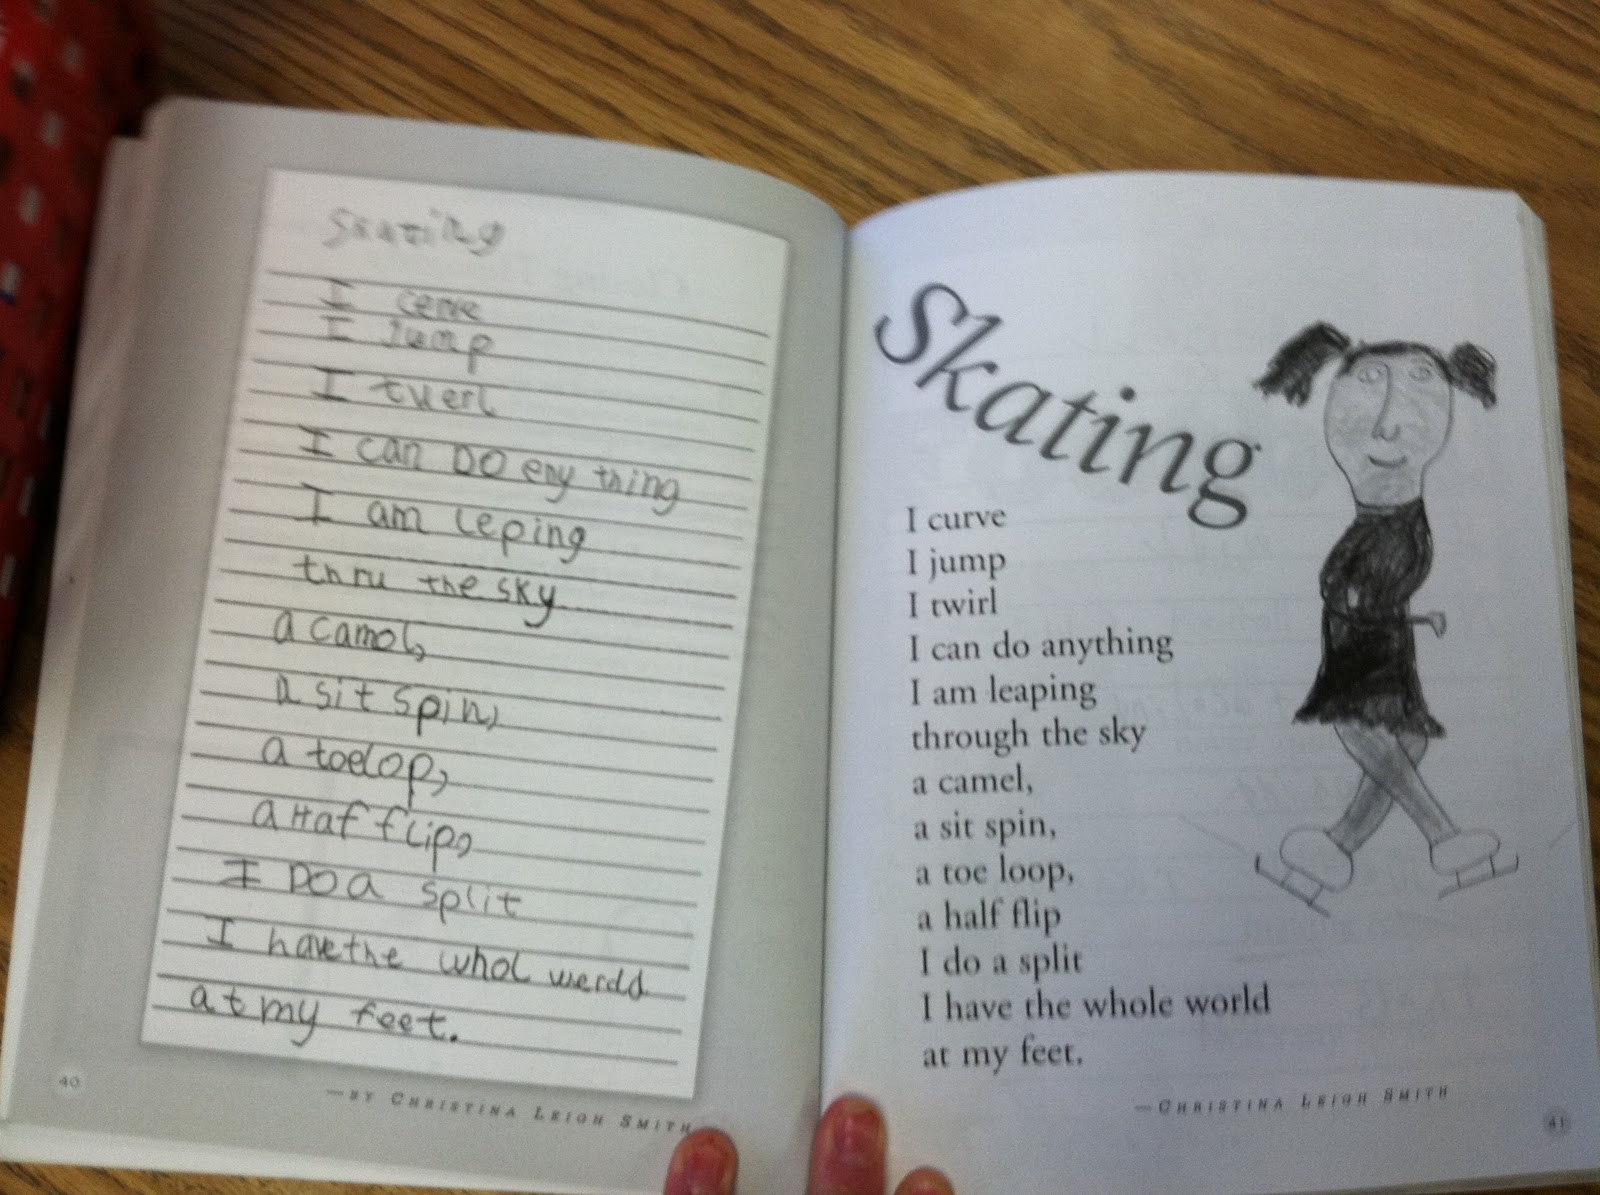 Skating
I cerve
I jump
I tuerl
I can DO eny thing
I am leping
thru the sky
a camol,
a sit spin,
a toelop,
a Haf flip,
I DO a split
I have the whol werdd
at my feet.
40
—BY CHRISTINA LEIGH SMITH
Skating
I curve
I jump
I twirl
I can do anything
I am leaping
through the sky
a camel,
a sit spin,
a toe loop,
a half flip
I do a split
I have the whole world
at my feet.
—CHRISTINA LEIGH SMITH
41